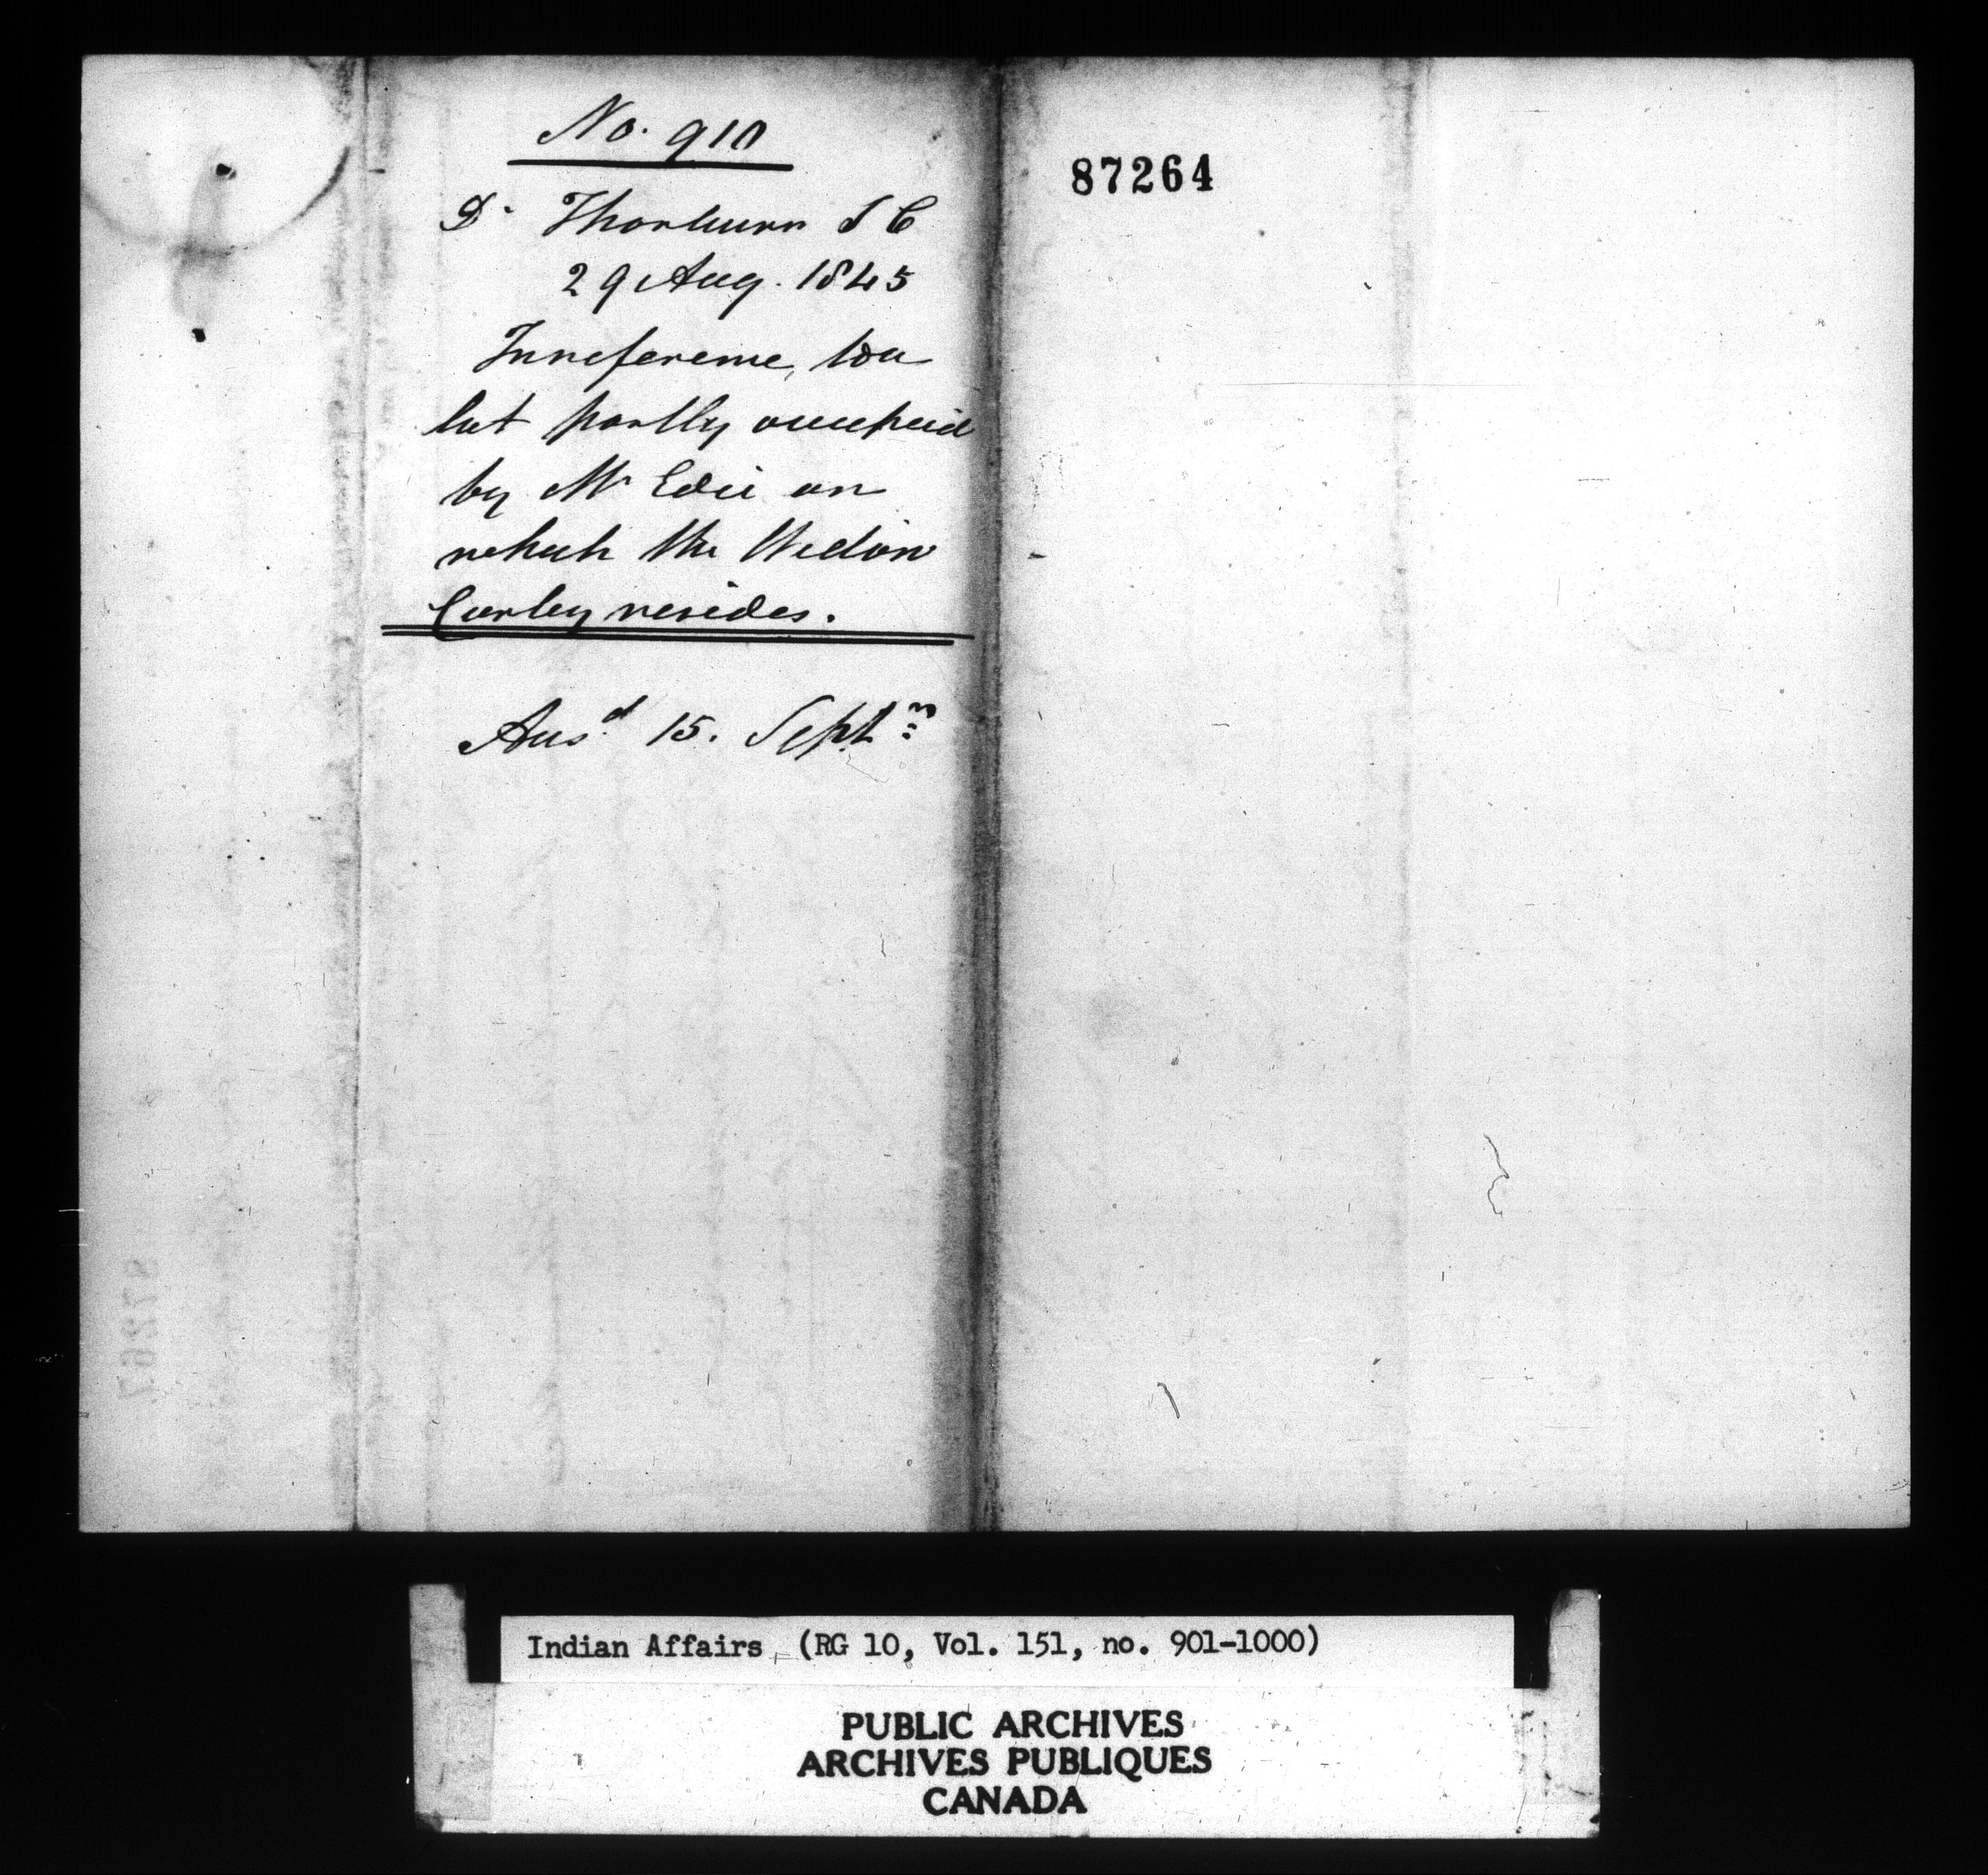 No. 910
D. Thorburn S C
29 Aug. 1845
In reference to a
lot partly occupied
by Mr Edie on
which the Widow
Curley resides.
Ans.d 15. Septr
87264
Indian Affairs (RG 10, Vol. 151, no. 901-1000)
PUBLIC ARCHIVES
ARCHIVES PUBLIQUES
CANADA